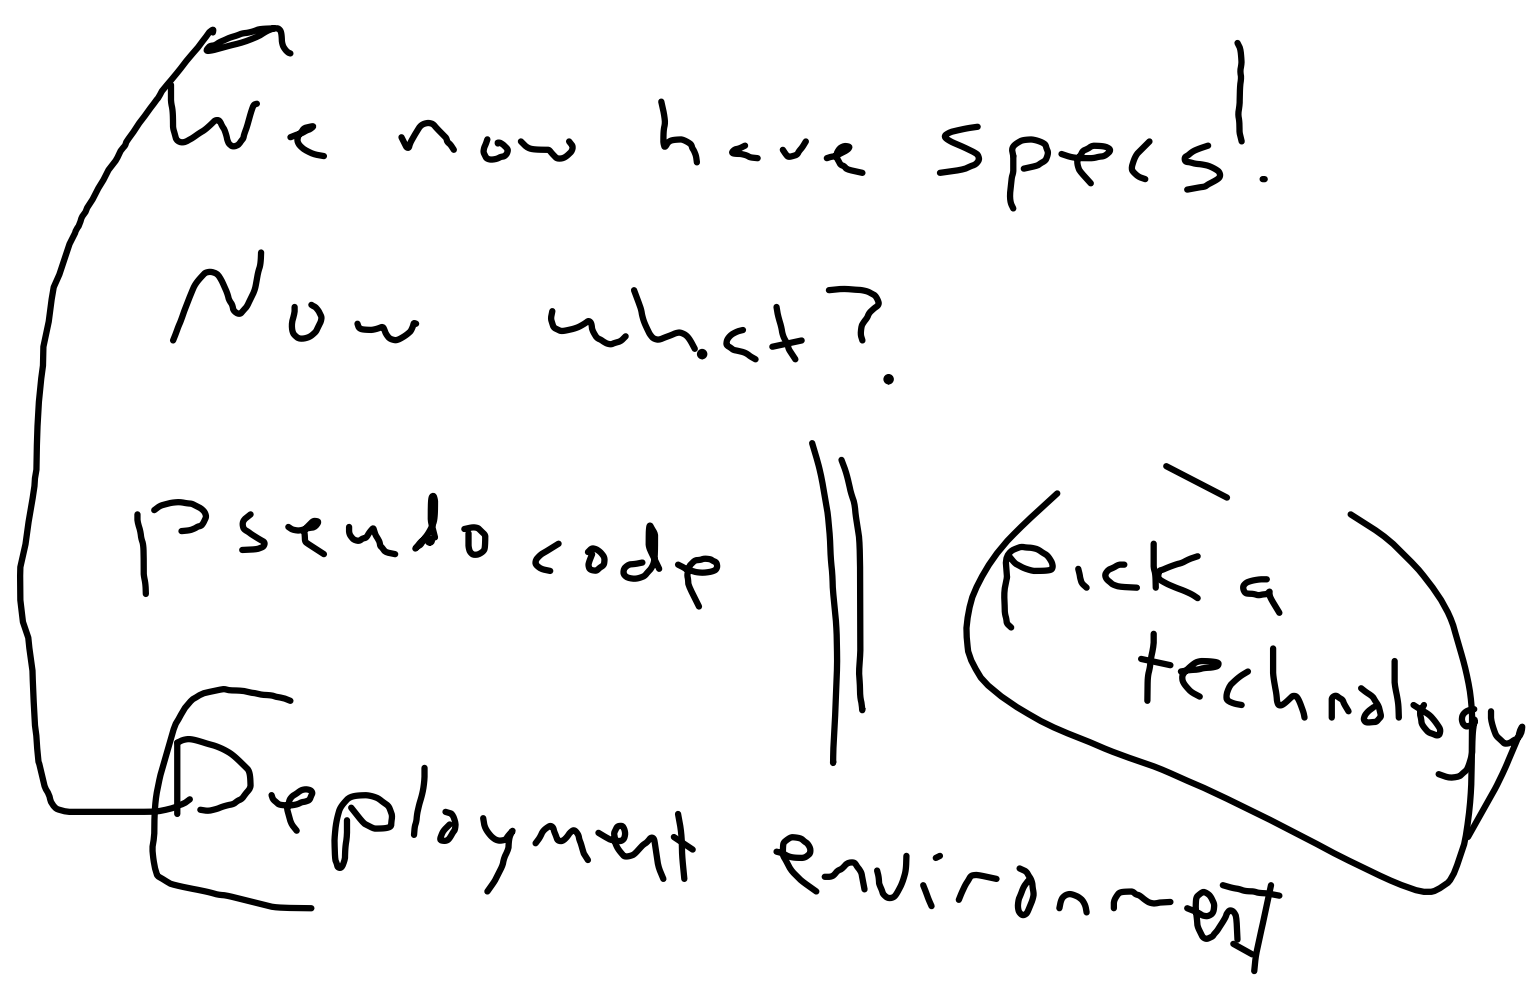 We now have specs!
Now what?
pseudo code
pick a
technology
Deployment environment